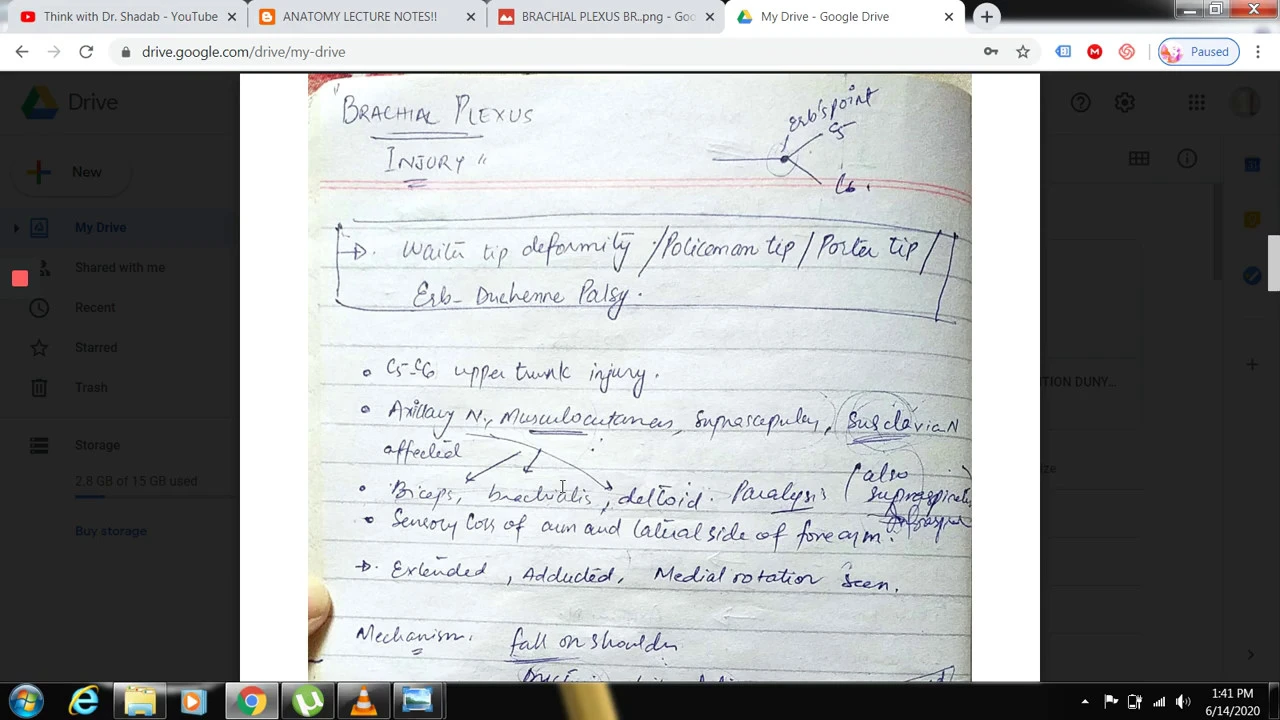 Think with Dr. Shadab - YouTube
ANATOMY LECTURE NOTES!!
BRACHIAL PLEXUS BR..png - Goo
My Drive - Google Drive
drive.google.com/drive/my-drive
Paused
Drive
New
My Drive
Shared with me
Recent
Starred
Trash
Storage
2.8 GB of 15 GB used
Buy storage
"BRACHIAL PLEXUS
INJURY"
Erb's point
C5
C6
Waiter tip deformity /Policeman tip/Porter tip/
Erb-Duchenne Palsy.
C5-C6 upper trunk injury.
Axillary N., Musculocutaneous, Suprascapular, Subclavian
affected
Biceps, brachialis, deltoid. Paralysis (also
supraspinatus
Sensory loss of arm and lateral side of forearm.
Extended, Adducted, Medial rotation seen.
Mechanism. fall on shoulder
1:41 PM
6/14/2020